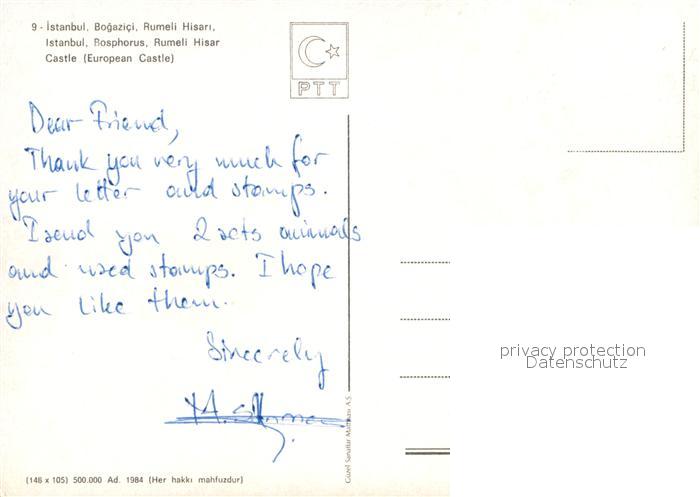 9 - İstanbul, Boğaziçi, Rumeli Hisarı,
Istanbul, Bosphorus, Rumeli Hisar
Castle (European Castle)
PTT
Dear Friend,
Thank you very much for
your letter and stamps.
I send you 2 sets animals
and used stamps. I hope
you like them.
Sincerely
Güzel Sanatlar Matbaası A.S.
privacy protection
Datenschutz
(148 x 105) 500.000 Ad. 1984 (Her hakkı mahfuzdur)